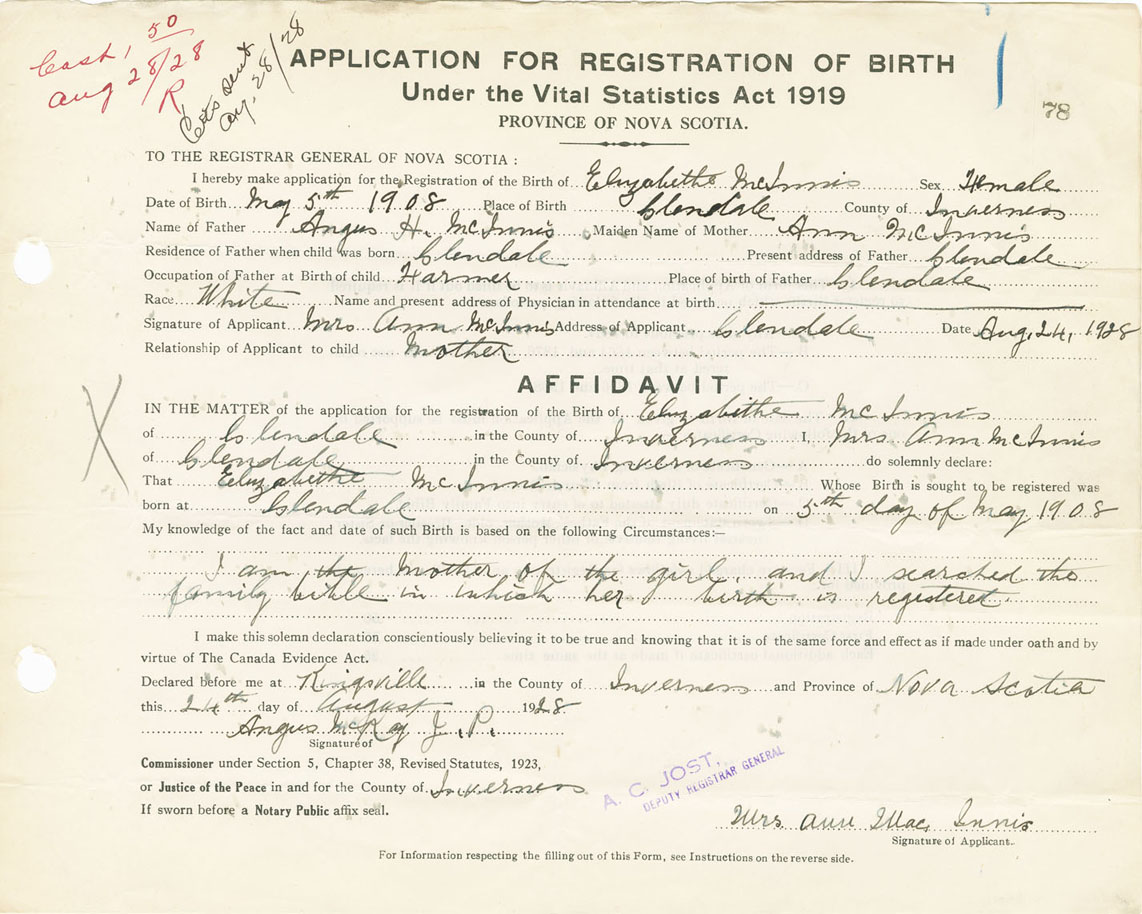 Cash, 50
Aug 28/28
R
Certs sent
Aug. 28/28
APPLICATION FOR REGISTRATION OF BIRTH
Under the Vital Statistics Act 1919
PROVINCE OF NOVA SCOTIA.
78
TO THE REGISTRAR GENERAL OF NOVA SCOTIA :
I hereby make application for the Registration of the Birth of Elizabethe McInnis Sex Female
Date of Birth May 5th 1908 Place of Birth Glendale County of Inverness
Name of Father Angus H. McInnis Maiden Name of Mother Ann McInnis
Residence of Father when child was born Glendale Present address of Father Glendale
Occupation of Father at Birth of child Farmer Place of birth of Father Glendale
Race White Name and present address of Physician in attendance at birth
Signature of Applicant Mrs Ann McInnis Address of Applicant Glendale Date Aug. 24, 1928
Relationship of Applicant to child Mother
AFFIDAVIT
IN THE MATTER of the application for the registration of the Birth of Elizabethe McInnis
of Glendale in the County of Inverness I, Mrs. Ann McInnis
of Glendale in the County of Inverness do solemnly declare:
That Elizabethe McInnis Whose Birth is sought to be registered was
born at Glendale on 5th day of May 1908
My knowledge of the fact and date of such Birth is based on the following Circumstances:—
I am the Mother of the girl, and I searched the
family bible in which her birth is registered.
I make this solemn declaration conscientiously believing it to be true and knowing that it is of the same force and effect as if made under oath and by
virtue of The Canada Evidence Act.
Declared before me at Kingsville in the County of Inverness and Province of Nova Scotia
this 24th day of August 1928
Angus McKay J. P.
Signature of
Commissioner under Section 5, Chapter 38, Revised Statutes, 1923,
or Justice of the Peace in and for the County of Inverness
If sworn before a Notary Public affix seal.
A. C. JOST,
DEPUTY REGISTRAR GENERAL
Mrs. Ann Mac Innis
Signature of Applicant.
For Information respecting the filling out of this Form, see Instructions on the reverse side.